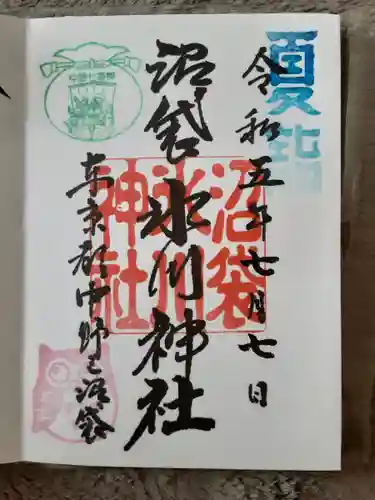 夏詣
令和五年七月七日
沼袋氷川神社
沼袋
氷川
神社
東京都中野区沼袋
中野七福神